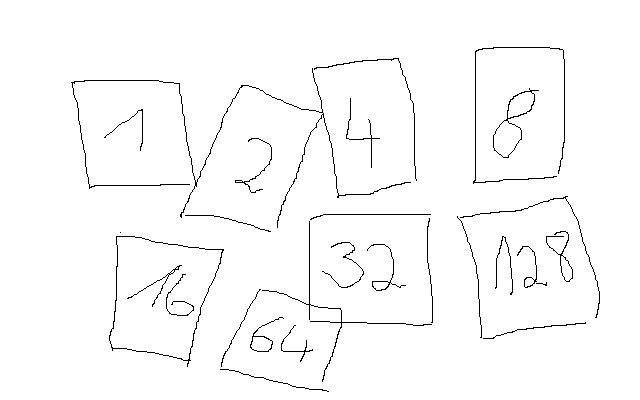 1 2 4 8
16 64 32 128